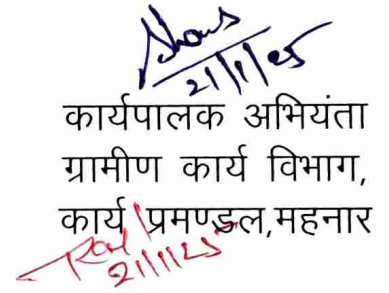 21/1/25
कार्यपालक अभियंता
ग्रामीण कार्य विभाग,
कार्य प्रमण्डल,महनार
21/1/25